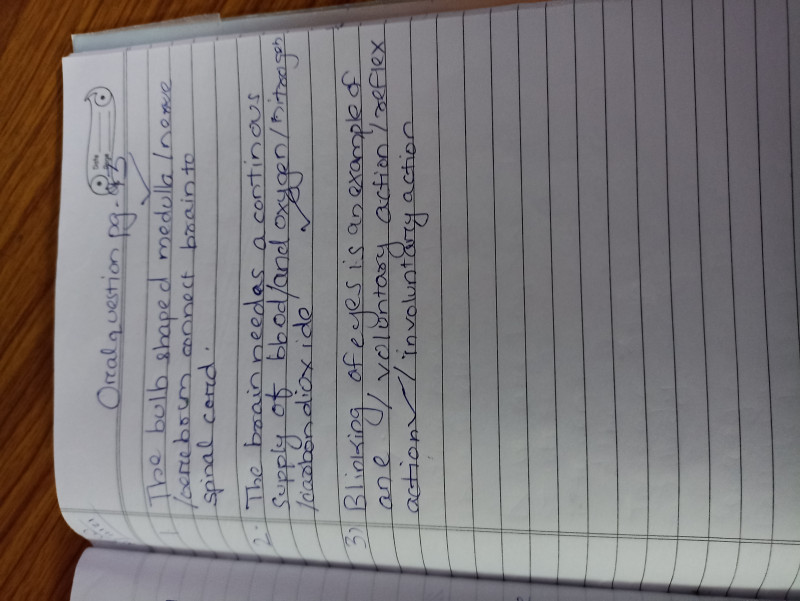 Oralquestion pg-93
1. The bulb shaped medulla/nerve
/cerebrum connect brain to
spinal cord.
2. The brain needas a continous
supply of blood/and oxygen/nitrogen
/carbondioxide
3) Blinking of eyes is an example of
an e / voluntary action / reflex
action / involuntary action